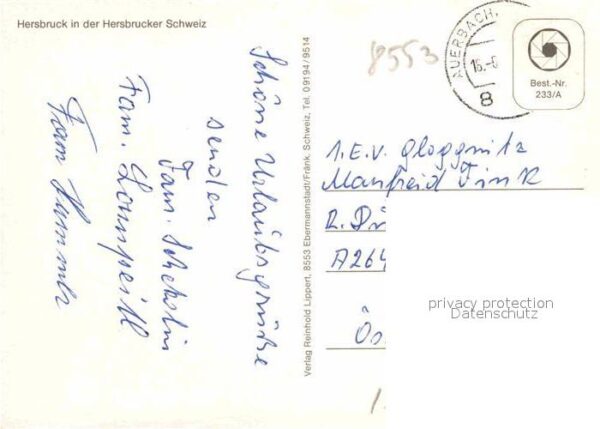 Hersbruck in der Hersbrucker Schweiz
Schöne Urlaubsgrüße
senden
Fam.
Fam.
Fam Hammer
Verlag Reinhold Lippert, 8553 Ebermannstadt/Fränk. Schweiz, Tel. 09194/9514
8553
AUERBACH,
16.-6
8
Best.-Nr.
233/A
1. E.V. Gloggnitz
Manfreid Fink
A264
privacy protection
Datenschutz
Ös